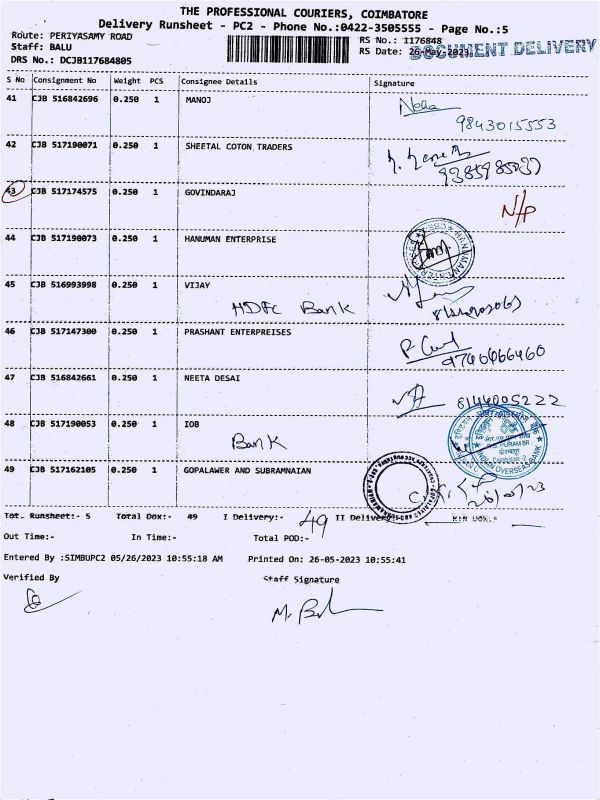 THE PROFESSIONAL COURIERS, COIMBATORE
Delivery Runsheet - PC2 - Phone No.:0422-3505555 - Page No.:5
Route: PERIYASAMY ROAD
RS No.: 1176848
Staff: BALU
RS Date: 26-May-2023
DOCUMENT DELIVERY
DRS No.: DCJB117684805
S No Consignment No Weight PCS Consignee Details Signature
41 CJB 516842696 0.250 1 MANOJ
Neha
9843015553
42 CJB 517190071 0.250 1 SHEETAL COTON TRADERS
43 CJB 517174575 0.250 1 GOVINDARAJ
N/P
44 CJB 517190073 0.250 1 HANUMAN ENTERPRISE
45 CJB 516993998 0.250 1 VIJAY
HDFC Bank
46 CJB 517147300 0.250 1 PRASHANT ENTERPREISES
9740466460
47 CJB 516842661 0.250 1 NEETA DESAI
8144005222
48 CJB 517190053 0.250 1 IOB
Bank
INDIAN OVERSEAS BANK
49 CJB 517162105 0.250 1 GOPALAWER AND SUBRAMNAIAN
Tot. Runsheet:- 5 Total Dox:- 49 I Delivery:- 49 II Delivery:-
Out Time:- In Time:- Total POD:-
Entered By :SIMBUPC2 05/26/2023 10:55:18 AM Printed On: 26-05-2023 10:55:41
Verified By Staff Signature